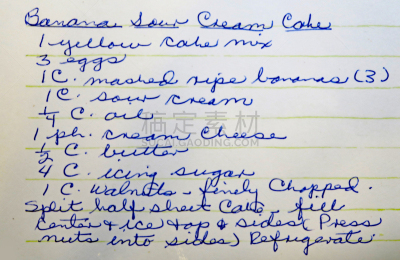 Banana Sour Cream Cake
1 yellow cake mix
3 eggs
1 C. mashed ripe bananas (3)
1 C. sour cream
1/4 C. oil
1 pk. cream cheese
1/2 C. butter
4 C. icing sugar
1 C. walnuts - finely chopped.
Split half sheet cake, fill
center & ice top & sides (Press
nuts into sides) Refrigerate
搞定素材
SO.GAODING.COM